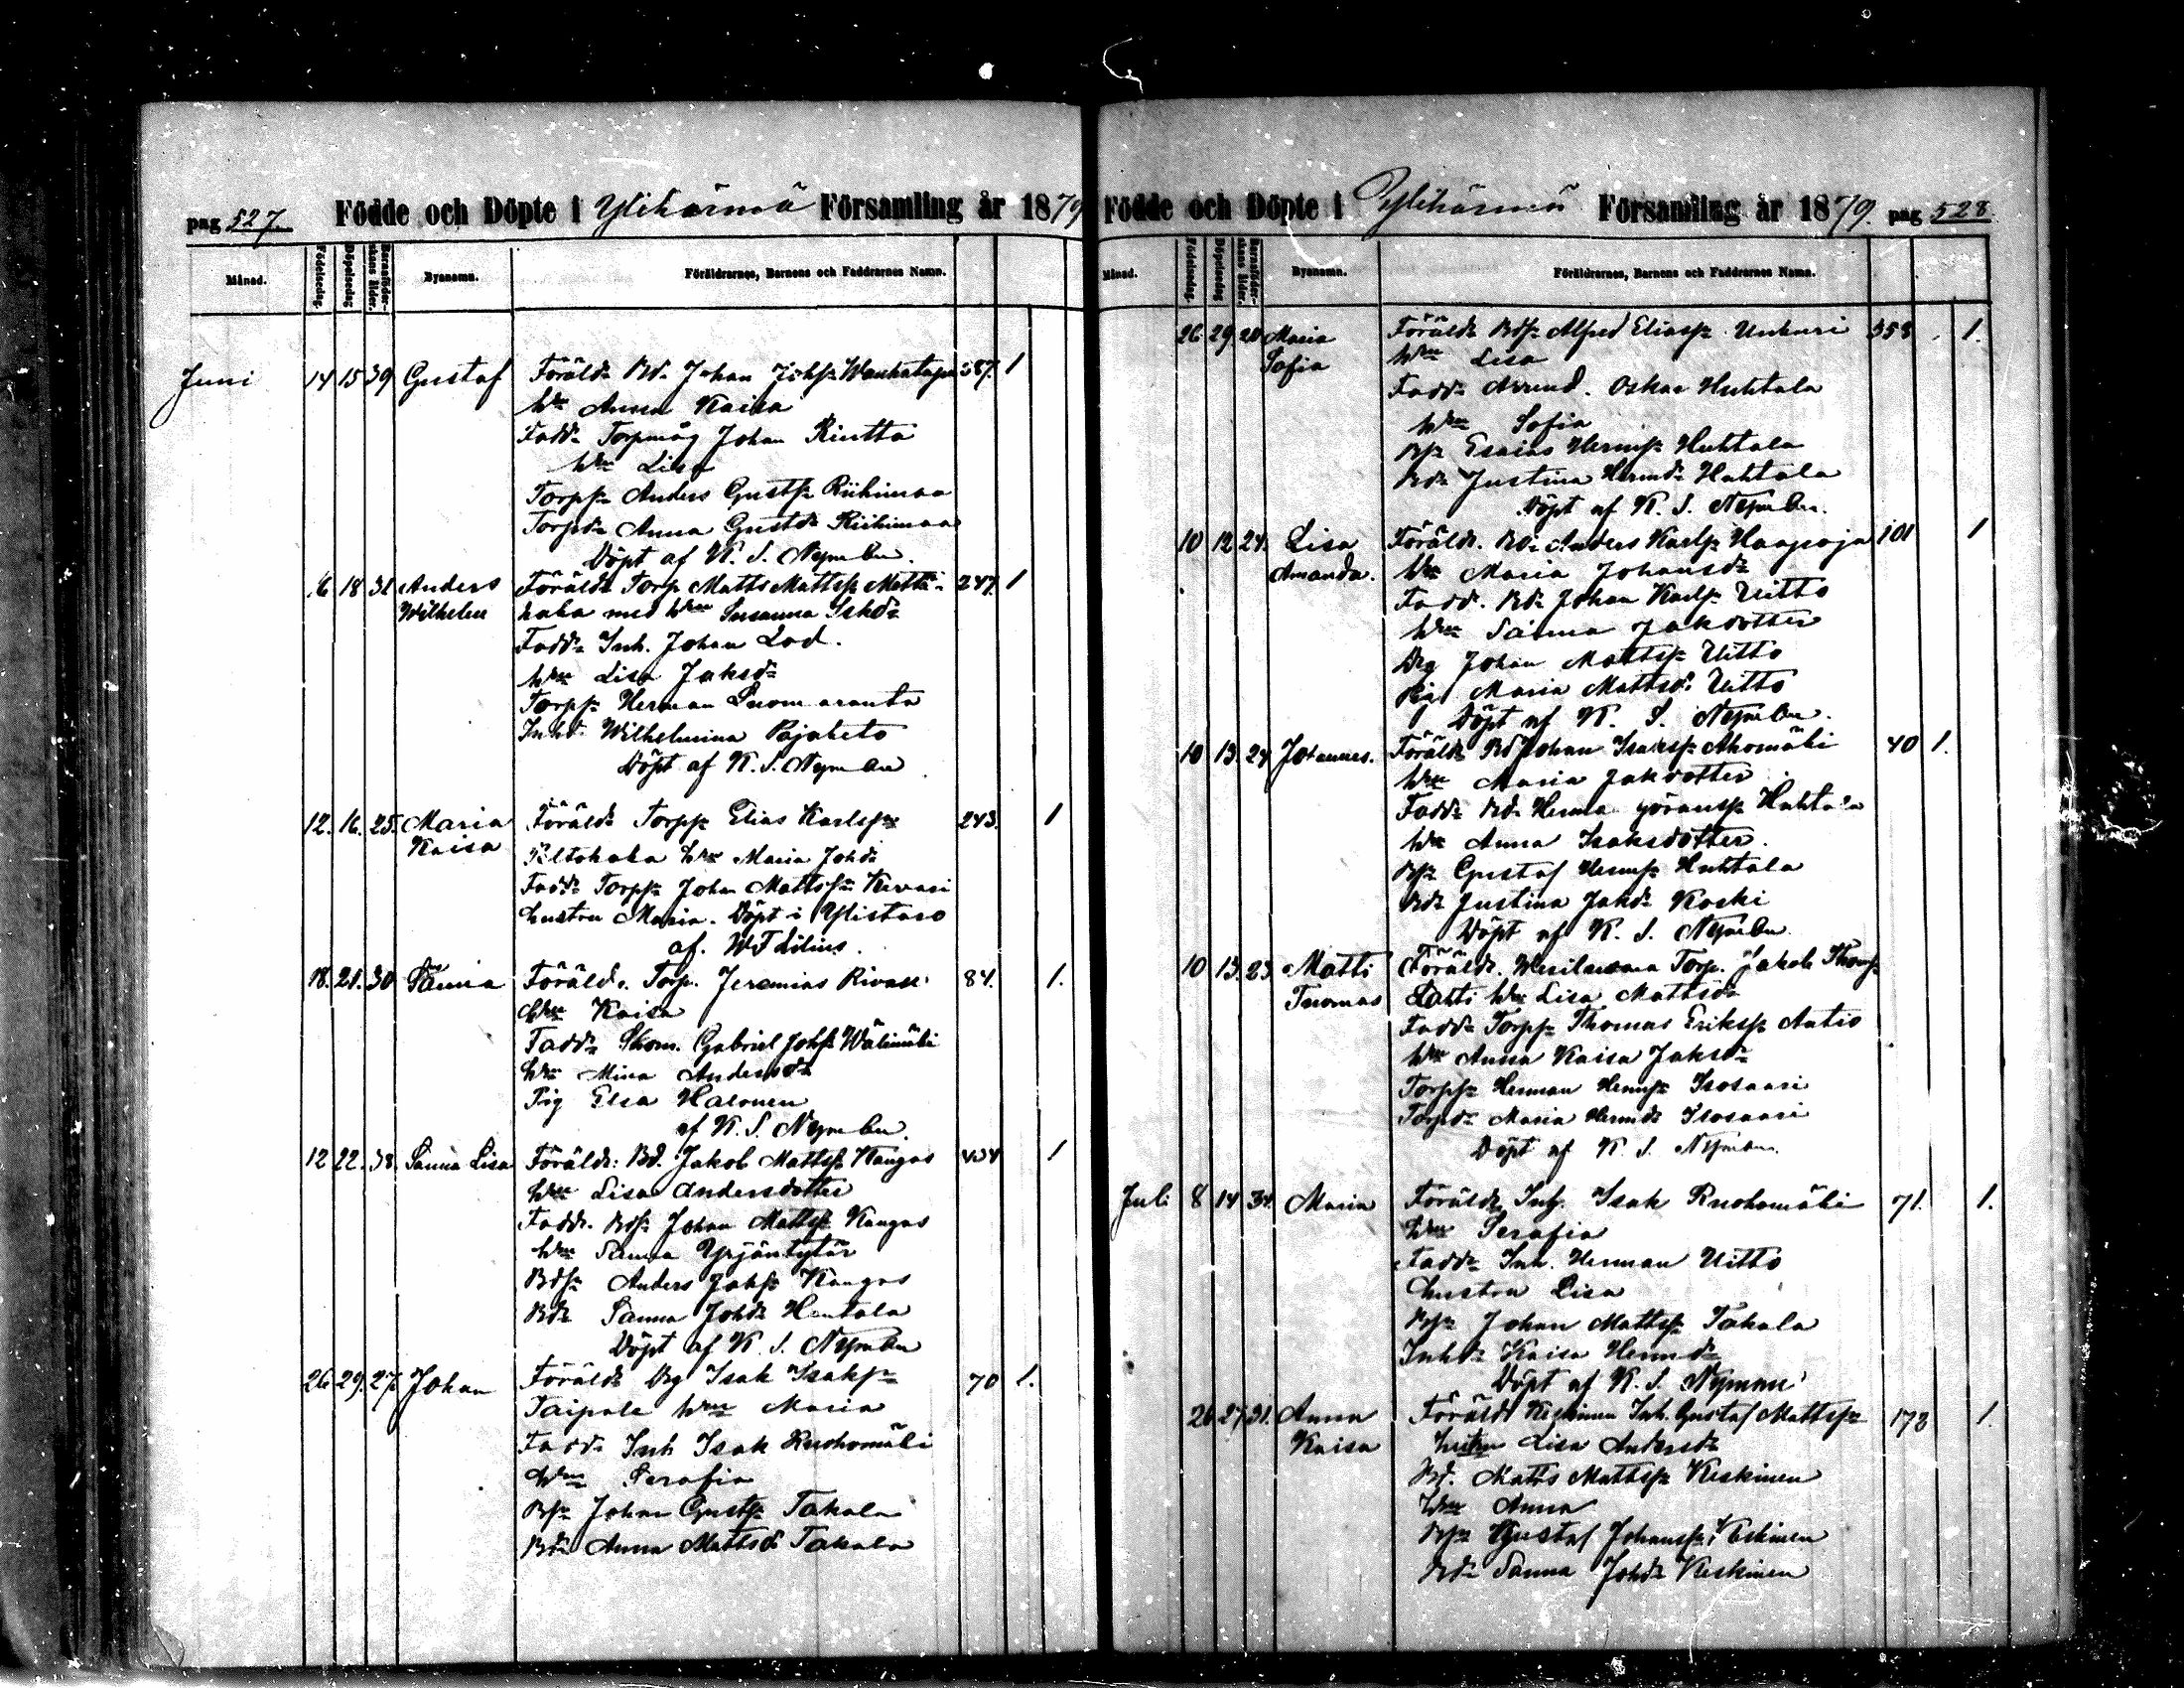 pag 527. Födde och Döpte i Ylihärmä Församling år 1879
Månad. Födelsedag. Döpelsedag Barnaföder-skans ålder. Bysnamn. Föräldrarnes, Barnens och Faddrarnes Namn.
Juni 14 15 39 Gustaf Föräldr Bd. Johan Johsn 287. 1
hm Anna Kaisa
Fadd. Johan Rintta
hm Lisa
Torpsn Anders Gustfsn Riihimaa
Torpdr Anna Gustdr Riihimaa
Döpt af K. S. Nyman.
6 18 31 Anders Föräldr Torp Matts Mattssn Matti- 247. 1
Wilhelm haka med hm Susanna Iskdr
Faddr Inh. Johan Lod.
hm Lisa Jaksdr
Torpsn Herman Luomaranta
Inhdr Wilhelmina Pajaketo
Döpt af K. S. Nyman
12. 16. 25. Maria Föräldr Torpsn Elias Karlssn 243. 1
Kaisa Peltohaka hm Maria Johdr
Faddr Torpsn Johan Mattssn Kevari
hustru Maria. Döpt i Ylistaro
af. W F Lilius.
18. 21. 30 Sanna Föräldr. Torp. Jeremias 84. 1.
hm Kaisa
Faddr Skom. Gabriel Johsn Wälimäki
hm Mina Andersdr
Pig Elsa Halonen
af K. S. Nyman.
12 22. 38. Sanna Lisa Föräldr: Bd. Jakob Mattssn Kangas 1
hm Lisa Andersdotter
Faddr. Bdsn Johan Mattssn Kangas
hm Sanna Yrjäntytär
Bdsn Anders Jaksn Kangas
Bdr Sanna Johdr Hantala
Döpt af K. S. Nyman
26 29. 27. Johan Föräldr Drg Isak Isakssn 70 1.
Taipale hm Maria
Faddr Inh Isak Ruohomäki
hm Serafia
Bsn Johan Gustfsn Takala
Bdr Anna Mattsdr Takala
Födde och Döpte i Ylihärmä Församling år 1879. pag 528.
Månad. Födelsedag. Döpelsedag Barnaföder-skans ålder. Bysnamn. Föräldrarnes, Barnens och Faddrarnes Namn.
26 29 20 Maria Föräldr Bdsn Alfred Eliassn Unkuri 358 1.
Sofia hm Lisa
Faddr Arrend. Oskar Huhtala
hm Sofia
Bsn Esaias Hermsn Huhtala
Bdr Justina Hermdr Huhtala
Döpt af K. S. Nyman.
10 12 24. Lisa Föräldr. Bd. Anders Karlsn Haapoja 101 1
Amanda. hm Maria Johansdr
Faddr. Bd. Johan Karlsn Uitto
hm Sanna Jakdotter
Drg Johan Mattssn Uitto
Pig Maria Mattsdr Uitto
Döpt af K. S. Nyman.
10 13. 24 Johannes. Föräldr Bd Johan Isakssn Ahomäki 40 1.
hm Maria Jakdotter
Faddr Bd. Herma Göranssn Huhtala
hm Anna Isaksdotter.
Bsn Gustaf Hermsn Huhtala
Bdr Justina Jakdr Koski
Döpt af K. S. Nyman
10 13. 23. Matti Föräldr. Torp. Jakob Thomsn
Tuomas Lahti hm Lisa Mattsdr
Faddr Torpsn Thomas Erikssn Autio
hm Anna Kaisa Jaksdr
Torpsn Herman Hermsn Isosaari
Torpdr Maria Hermdr Isosaari
Döpt af K. S. Nyman
Juli 8 14 34. Maria Föräldr Inh. Isak Ruohomäki 71. 1.
hm Serafia
Faddr Inh. Herman Uitto
hustru Lisa
Bsn Johan Mattssn Takala
Inhdr Kaisa Hermdr
Döpt af K. S. Nyman
26 27 31. Anna Föräldr Keskinen Inh. Gustaf Mattssn 178 1.
Kaisa hustru Lisa Andersdr
Bd. Matts Mattssn Keskinen
hm Anna
Bsn Gustaf Johanssn Keskinen
Bdr Sanna Johdr Keskinen